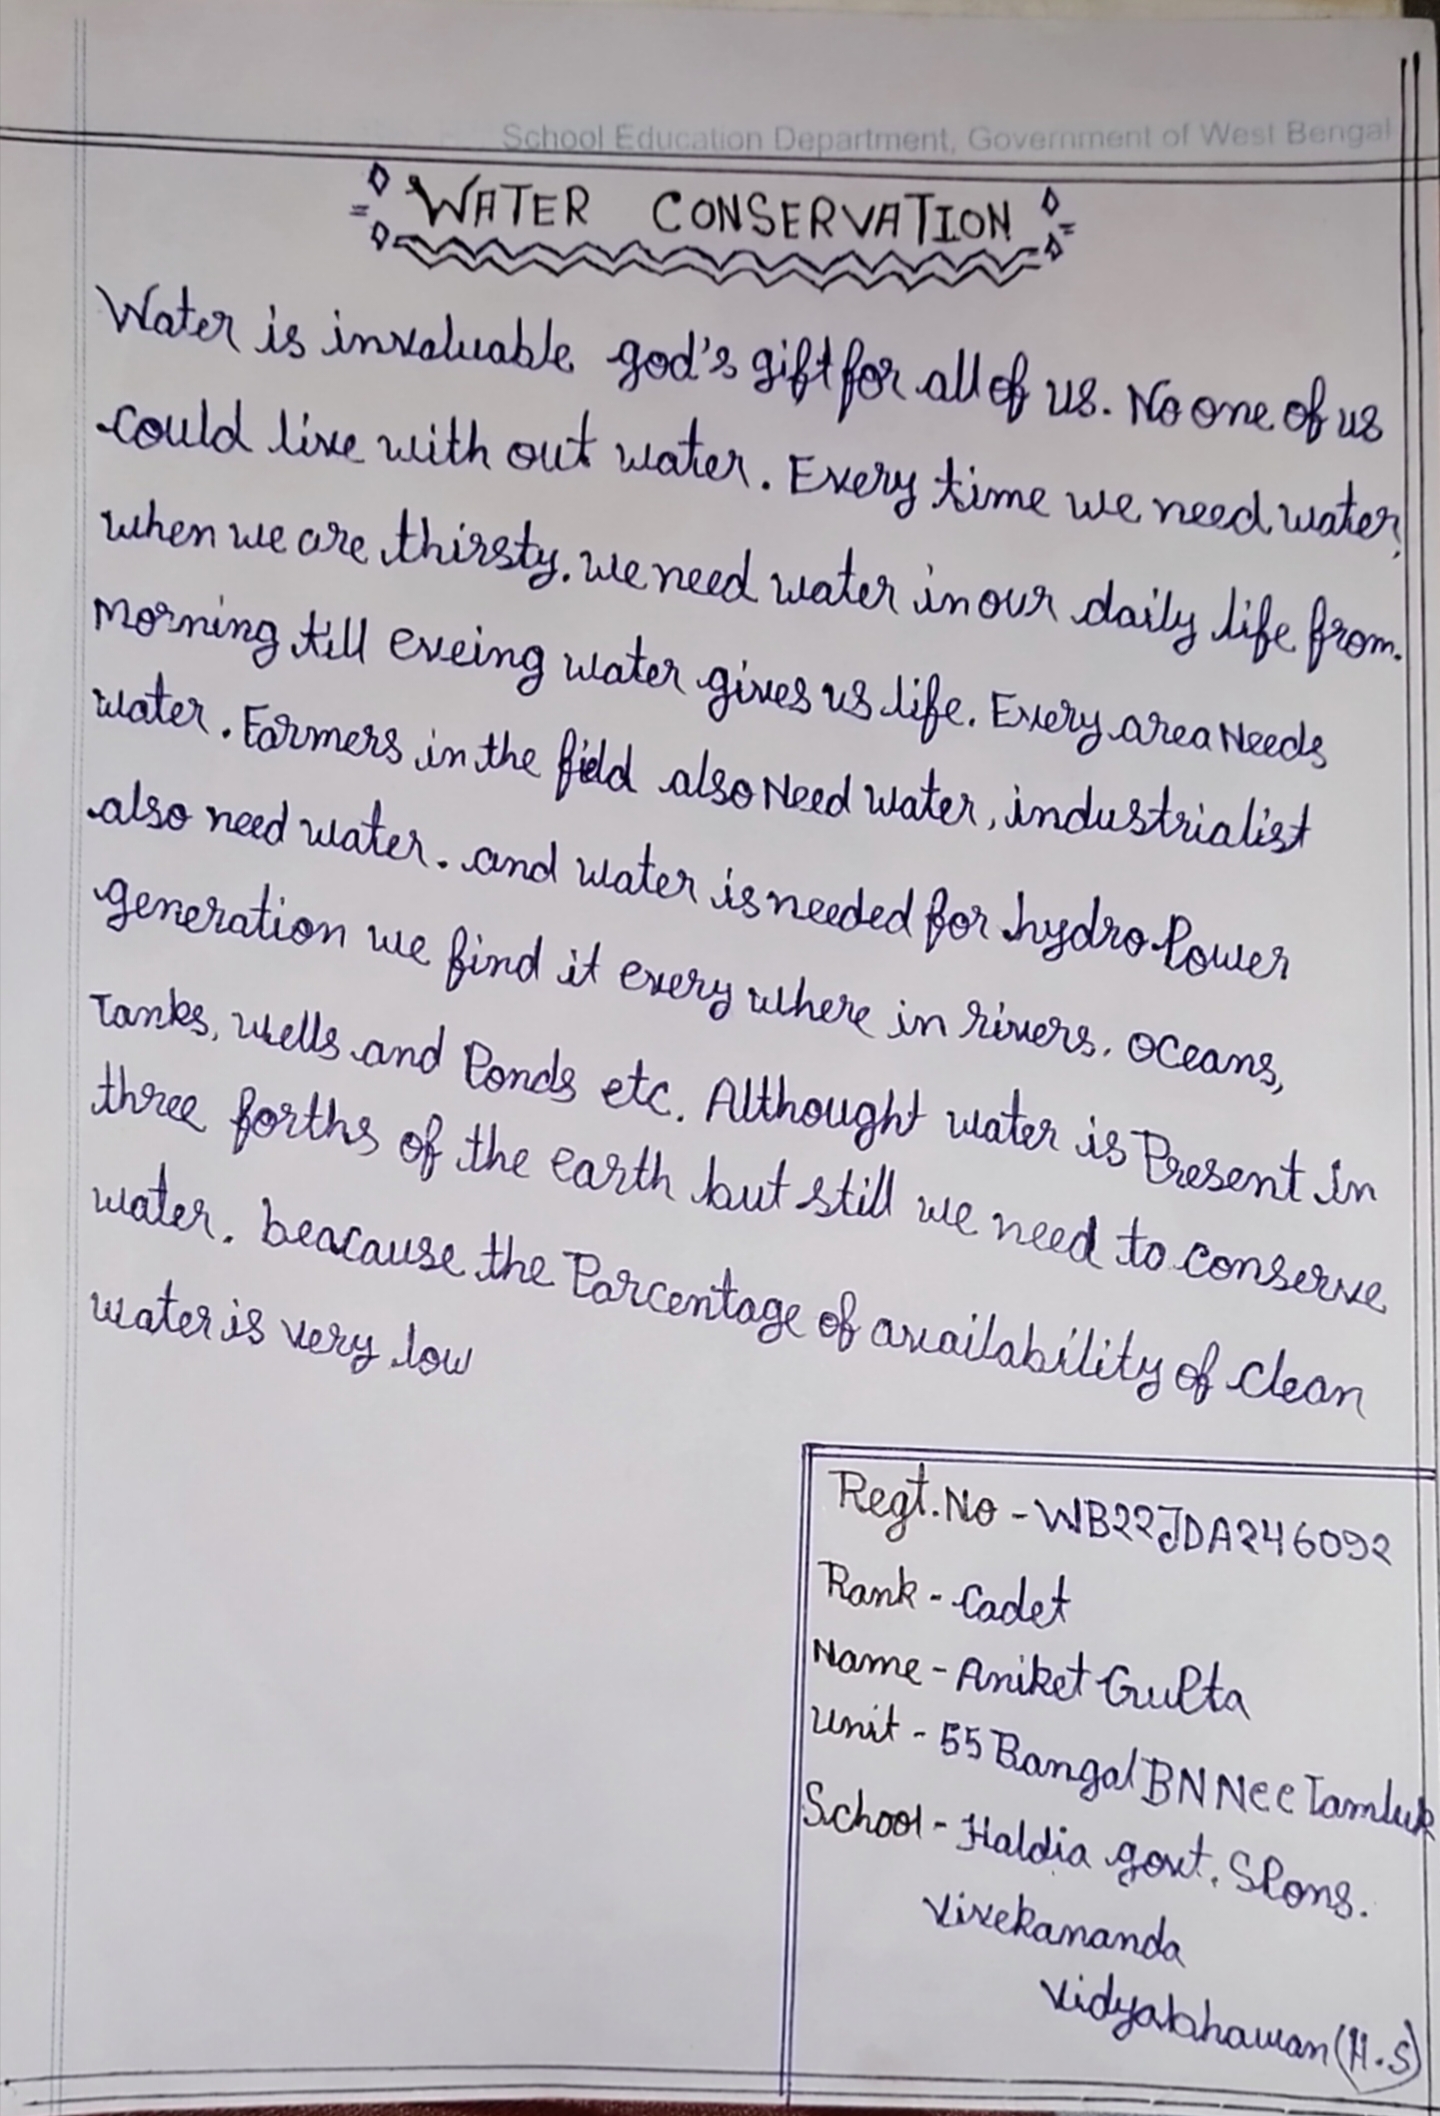 School Education Department, Government of West Bengal
WATER CONSERVATION
Water is invaluable god's gift for all of us. No one of us
could live with out water. Every time we need water,
when we are thirsty. we need water in our daily life from.
Morning till eveing water gives us life. Every area Needs
water. Farmers in the field also Need water, industrialist
also need water. and water is needed for hydro Power
generation we find it every where in rivers, oceans,
Tanks, wells and Ponds etc. Althought water is Present in
three forths of the earth but still we need to conserve
water. beacause the Parcentage of availability of clean
water is very low
Regt. No - WB22JDA246092
Rank - Cadet
Name - Aniket Gupta
Unit - 55 Bangal BN Ncc Tamluk
School - Haldia govt. Spons.
Vivekananda
Vidyabhawan (H.S)